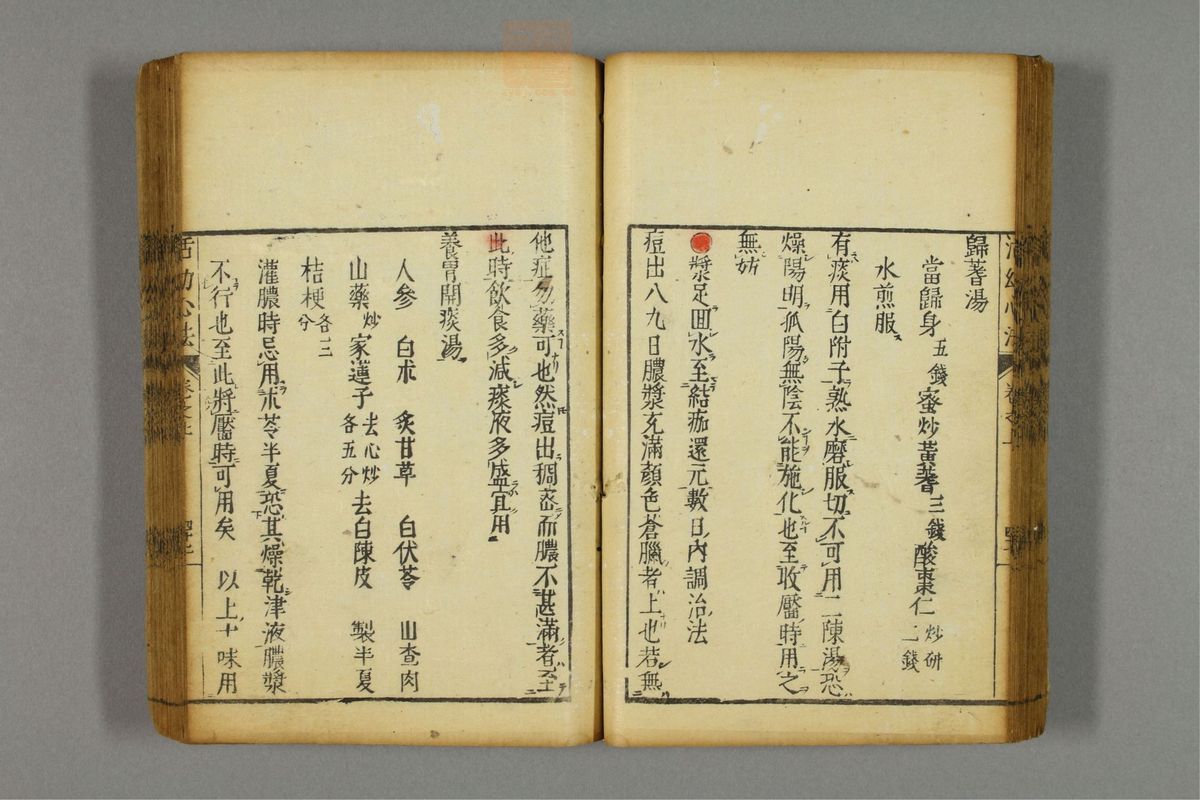 歸蓍湯
當歸身五錢 蜜炒黃蓍三錢 酸棗仁炒研二錢
水煎服
有痰用白附子熟水磨服切不可用二陳湯恐
燥陽明孤陽無陰不能施化也至收靨時用之
無妨
漿足回水至結痂還元數日內調治法
痘出八九日膿漿充滿顏色蒼臘者上也若無
他症勿藥可也然痘出稠密而膿不甚滿者至
此時飲食多減痰液多盛宜用
養胃開痰湯
人參 白朮 炙甘草 白茯苓 山查肉
山藥炒 家蓮子去心炒各五分 去白陳皮 製半夏
桔梗各三分
灌膿時忌用朮苓半夏恐其燥乾津液膿漿
不行也至此將靨時可用矣 以上十味用
活幼心法 卷之上